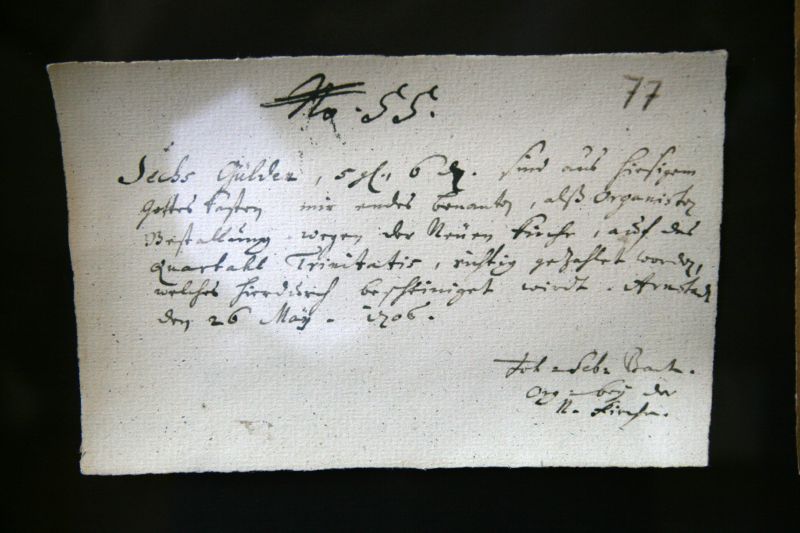 No. 55.
77
Sechs Gülden, 5 gl., 6 d. sind aus hiesigem
Gottes Kasten mir endes benanten, alß Organisten
Bestallung wegen der Neüen Kirche, auf das
Quartahl Trinitatis, richtig gezahlet worden,
welches hierdurch bescheiniget wirdt. Arnstadt
den 26 May. 1706.
Joh. Seb. Bach.
Org. bey der
N. Kirchen.